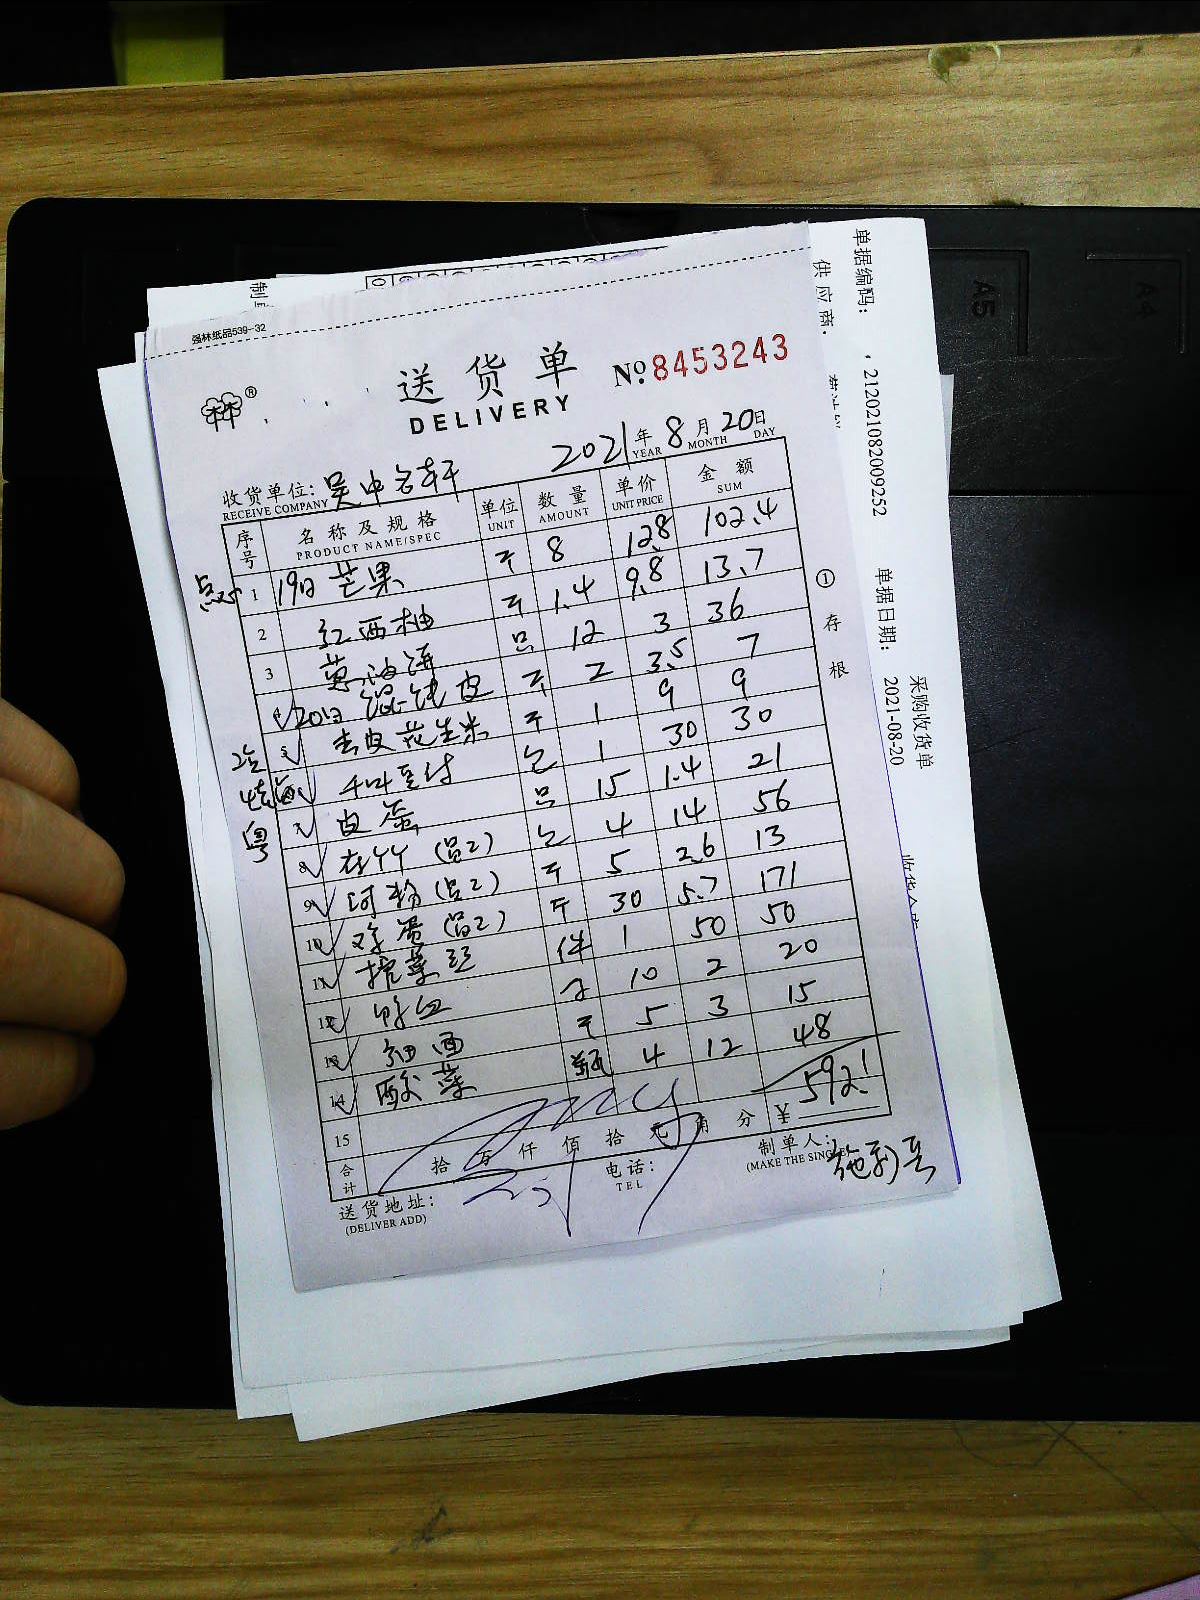 强林纸品539-32
送货单
DELIVERY
No. 8453243
2021年 8月 20日
YEAR MONTH DAY
收货单位: 吴中名轩
RECEIVE COMPANY
序号 名称及规格 单位 数量 单价 金额
PRODUCT NAME/SPEC UNIT AMOUNT UNIT PRICE SUM
1 19日 芒果 斤 8 12.8 102.4
2 红西柚 斤 1.4 9.8 13.7
3 葱油饼 只 12 3 36
20日 馄饨皮 斤 2 3.5 7
5 去皮花生米 斤 1 9 9
包 1 30 30
7 皮蛋 只 15 1.4 21
8 (员2) 包 4 14 56
9 河粉(员2) 斤 5 2.6 13
10 鸡蛋(员2) 斤 30 5.7 171
11 榨菜丝 件 1 50 50
12 鸭血 10 2 20
13 细面 斤 5 3 15
14 酸菜 瓶 4 12 48
15
合计 拾 万 仟 佰 拾 元 角 分 ¥ 592.1
送货地址:
(DELIVER ADD)
电话:
TEL
制单人:
(MAKE THE SINGLE
①存根
点心
粤
单据编码:
212021082009252
供应商:
单据日期:
2021-08-20
采购收货单
A5
A4